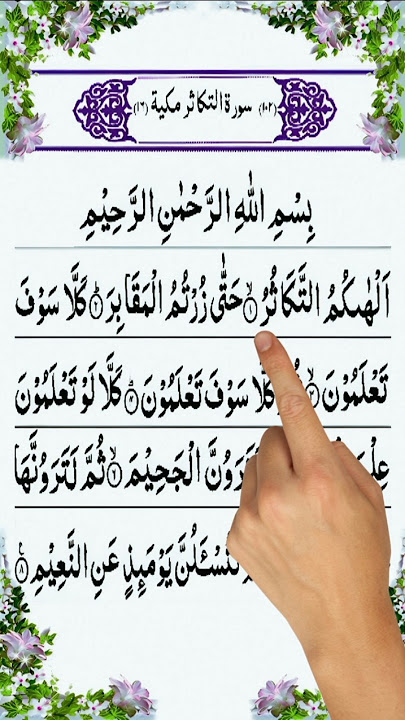 (١٠٢) سورة التكاثر مكية (١٦)
بِسْمِ اللّٰهِ الرَّحْمٰنِ الرَّحِيْمِ
اَلْهٰىكُمُ التَّكَاثُرُ ۙ﴿۱﴾ حَتّٰى زُرْتُمُ الْمَقَابِرَ ؕ﴿۲﴾ كَلَّا سَوْفَ
تَعْلَمُوْنَ ۙ﴿۳﴾ كَلَّا سَوْفَ تَعْلَمُوْنَ ؕ﴿۴﴾ كَلَّا لَوْ تَعْلَمُوْنَ
الْجَحِيْمَ ۙ﴿۶﴾ ثُمَّ لَتَرَوُنَّهَا
يَوْمَئِذٍ عَنِ النَّعِيْمِ ﴿۸﴾